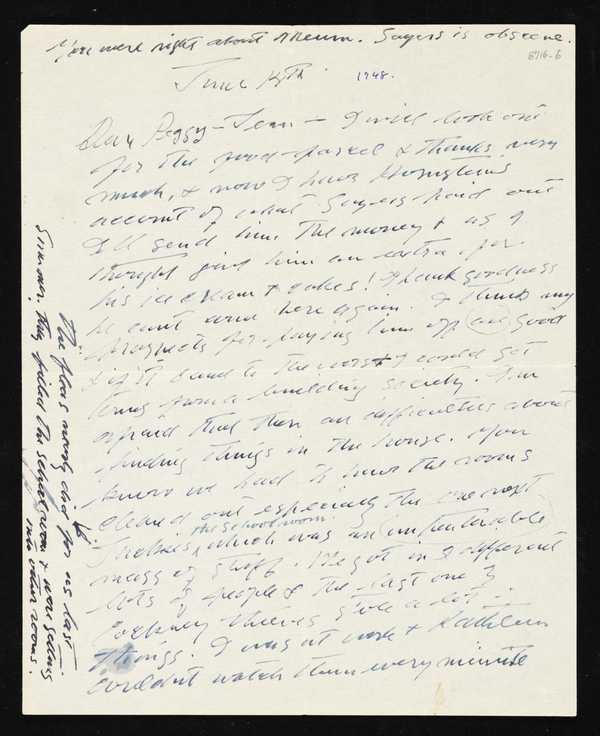 You were right about Rheum. Sayers is obscene.
8716-6
June 14th. 1948.
Dear Peggy-Jean — I will look out
for the food-parcel & thanks very
much, & now I have Hornstein's
account of what Sayers paid out
I'll send him the money & as I
thought give him an extra for
his ice cream & cakes! Thank goodness
he can't come here again. I think my
prospects for paying him off are good
& if it came to the worst I could get
from a building society. I'm
afraid that there are difficulties about
finding things in the house. You
know we had to have the rooms
cleared out especially the one next
the schoolroom
which was an
mass of stuff. We got in 3 different
lots of people & the last one 3
Cockney thieves stole a lot of
things. I was at work & Kathleen
couldn't watch them every minute
The fleas nearly did for us last
Summer. They filled the schoolroom & were getting
into other rooms.